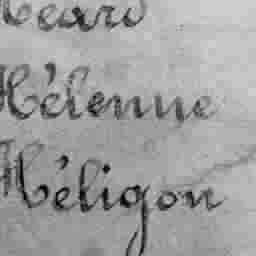 Hélenne
Héligon